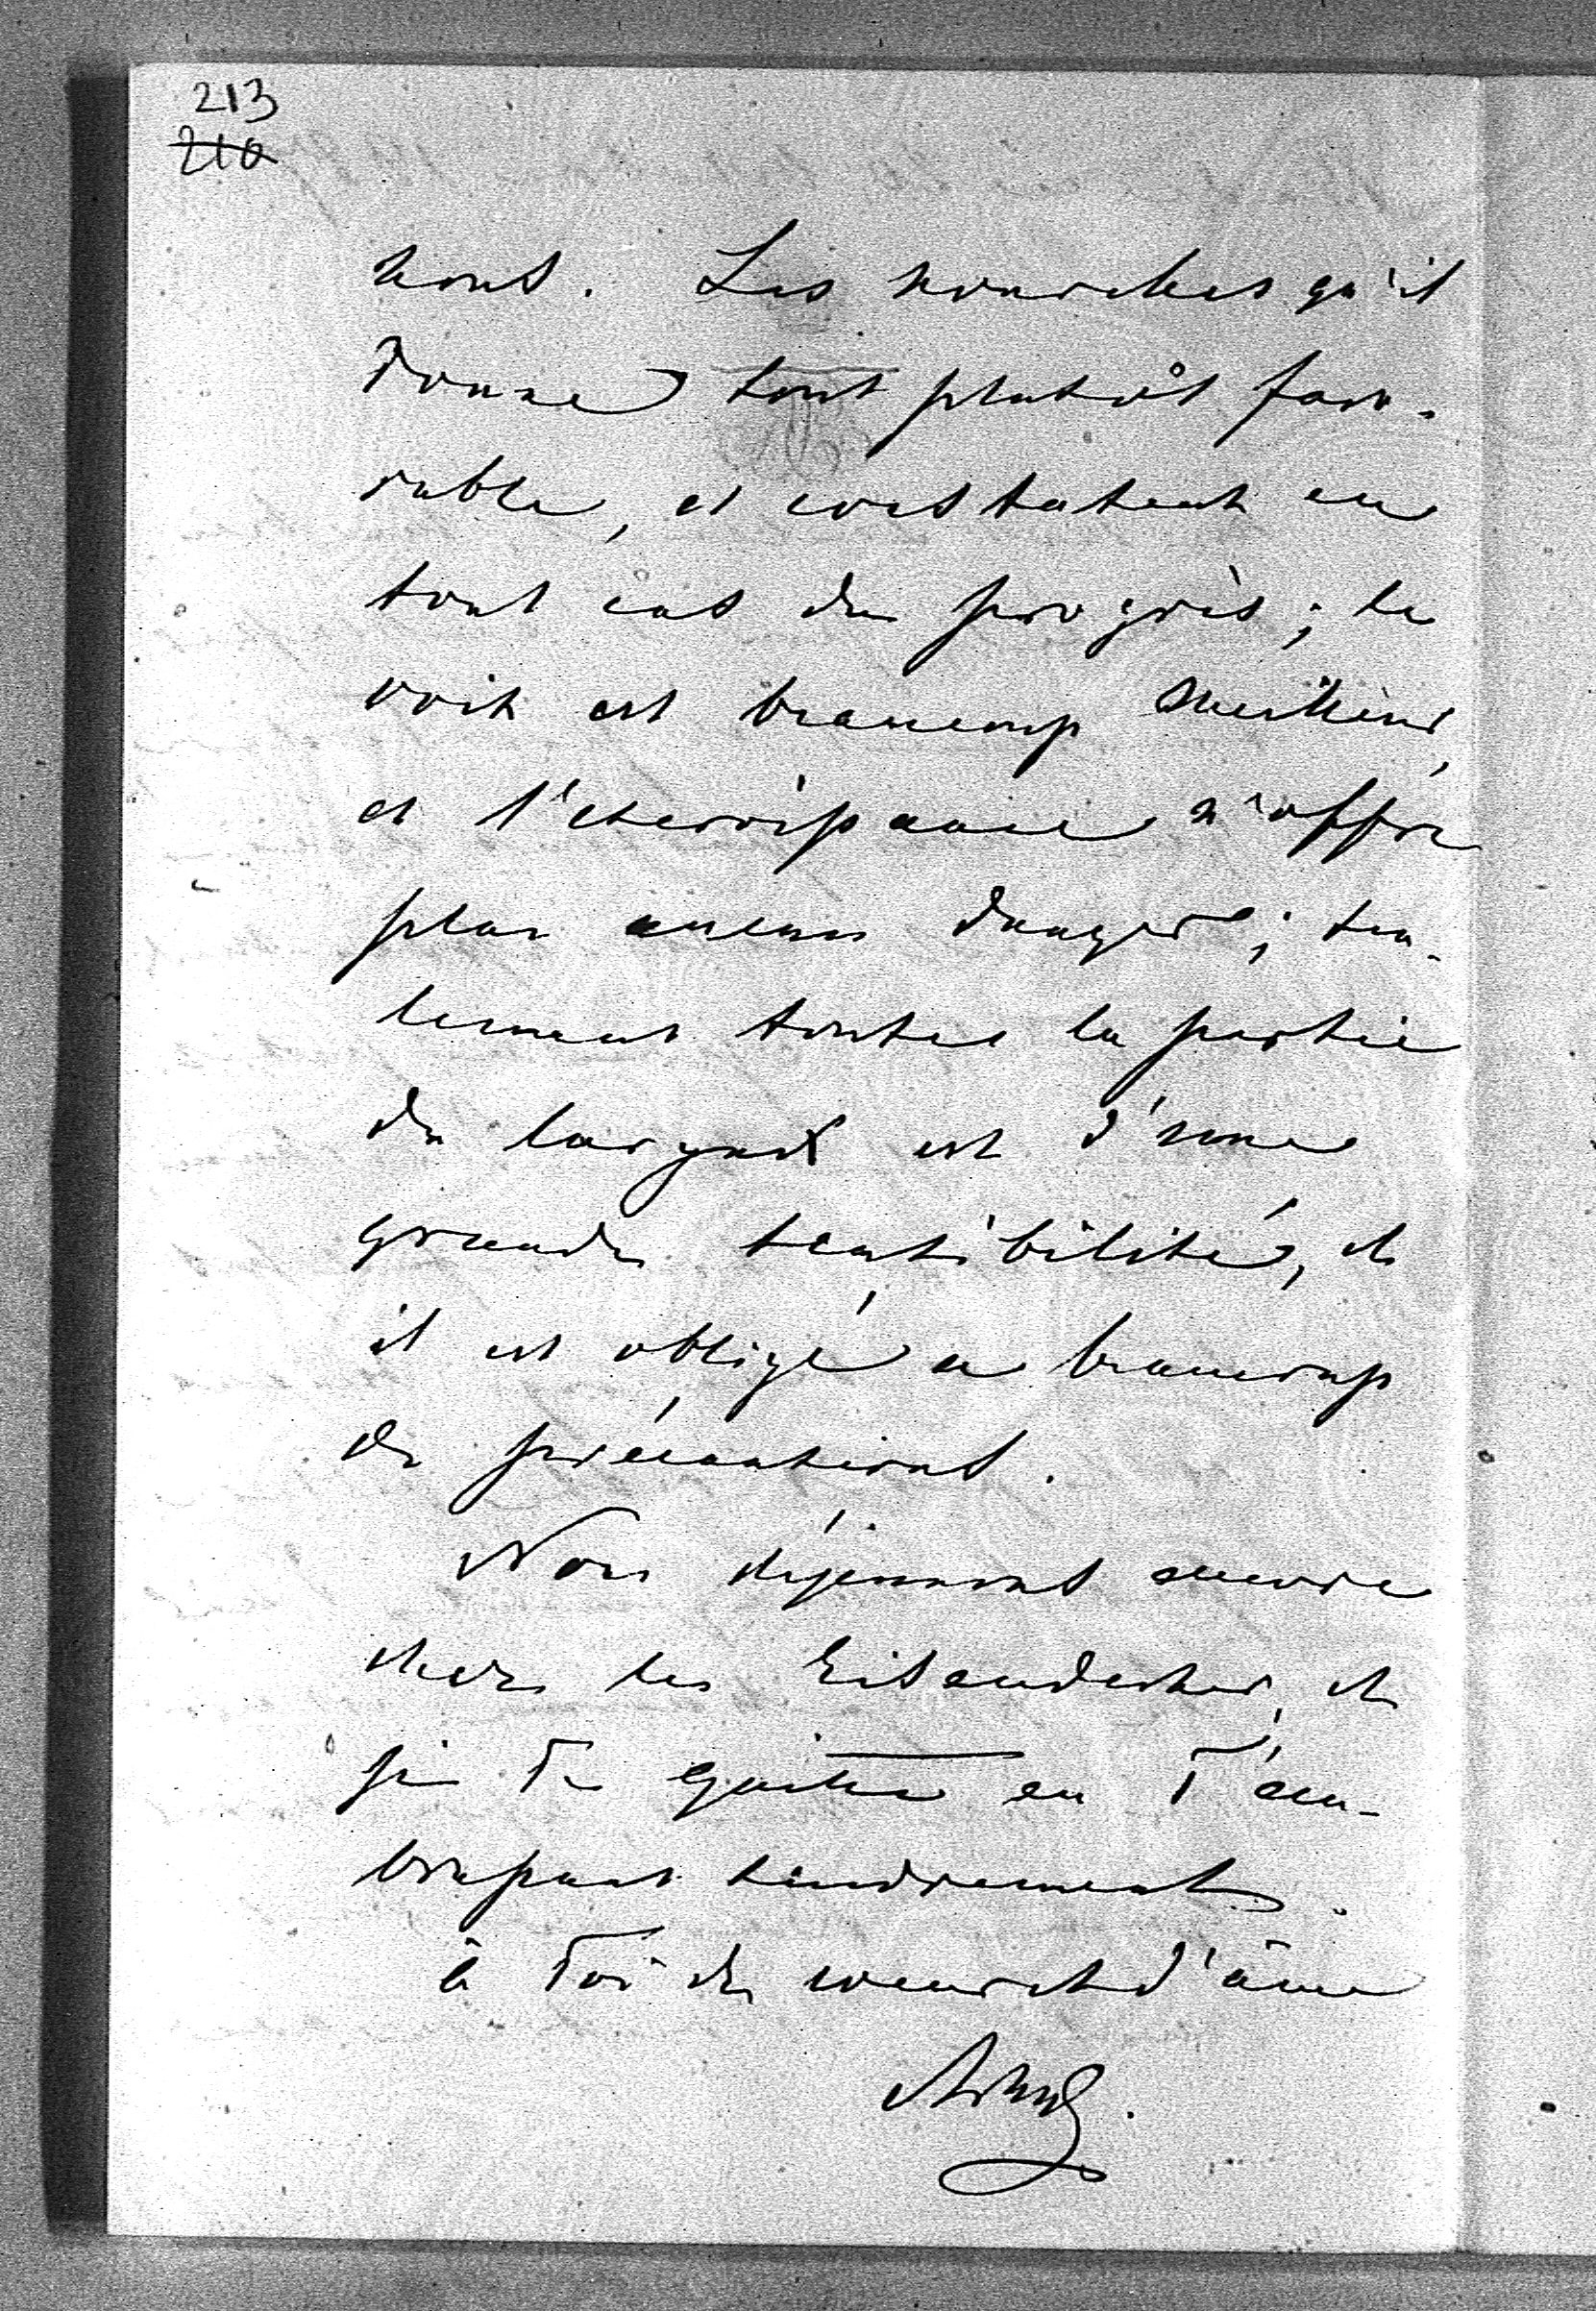 213
210
nous. Les nouvelles qu'il
donne sont plutôt favo-
rable, et constatent en
tout cas du progrès; la
voix est beaucoup meilleure,
et l'excroissance n'offre
plus aucun danger; seu-
lement toutes la partie
du larynx est d'une
grande sensibilité, et
il est obligé a beaucoup
de précautions.
Nous déjeunons encore
chez les Eisendecher, et
je Te quitte en T'em-
brassant tendrement.
à Toi de coeur et d'âme